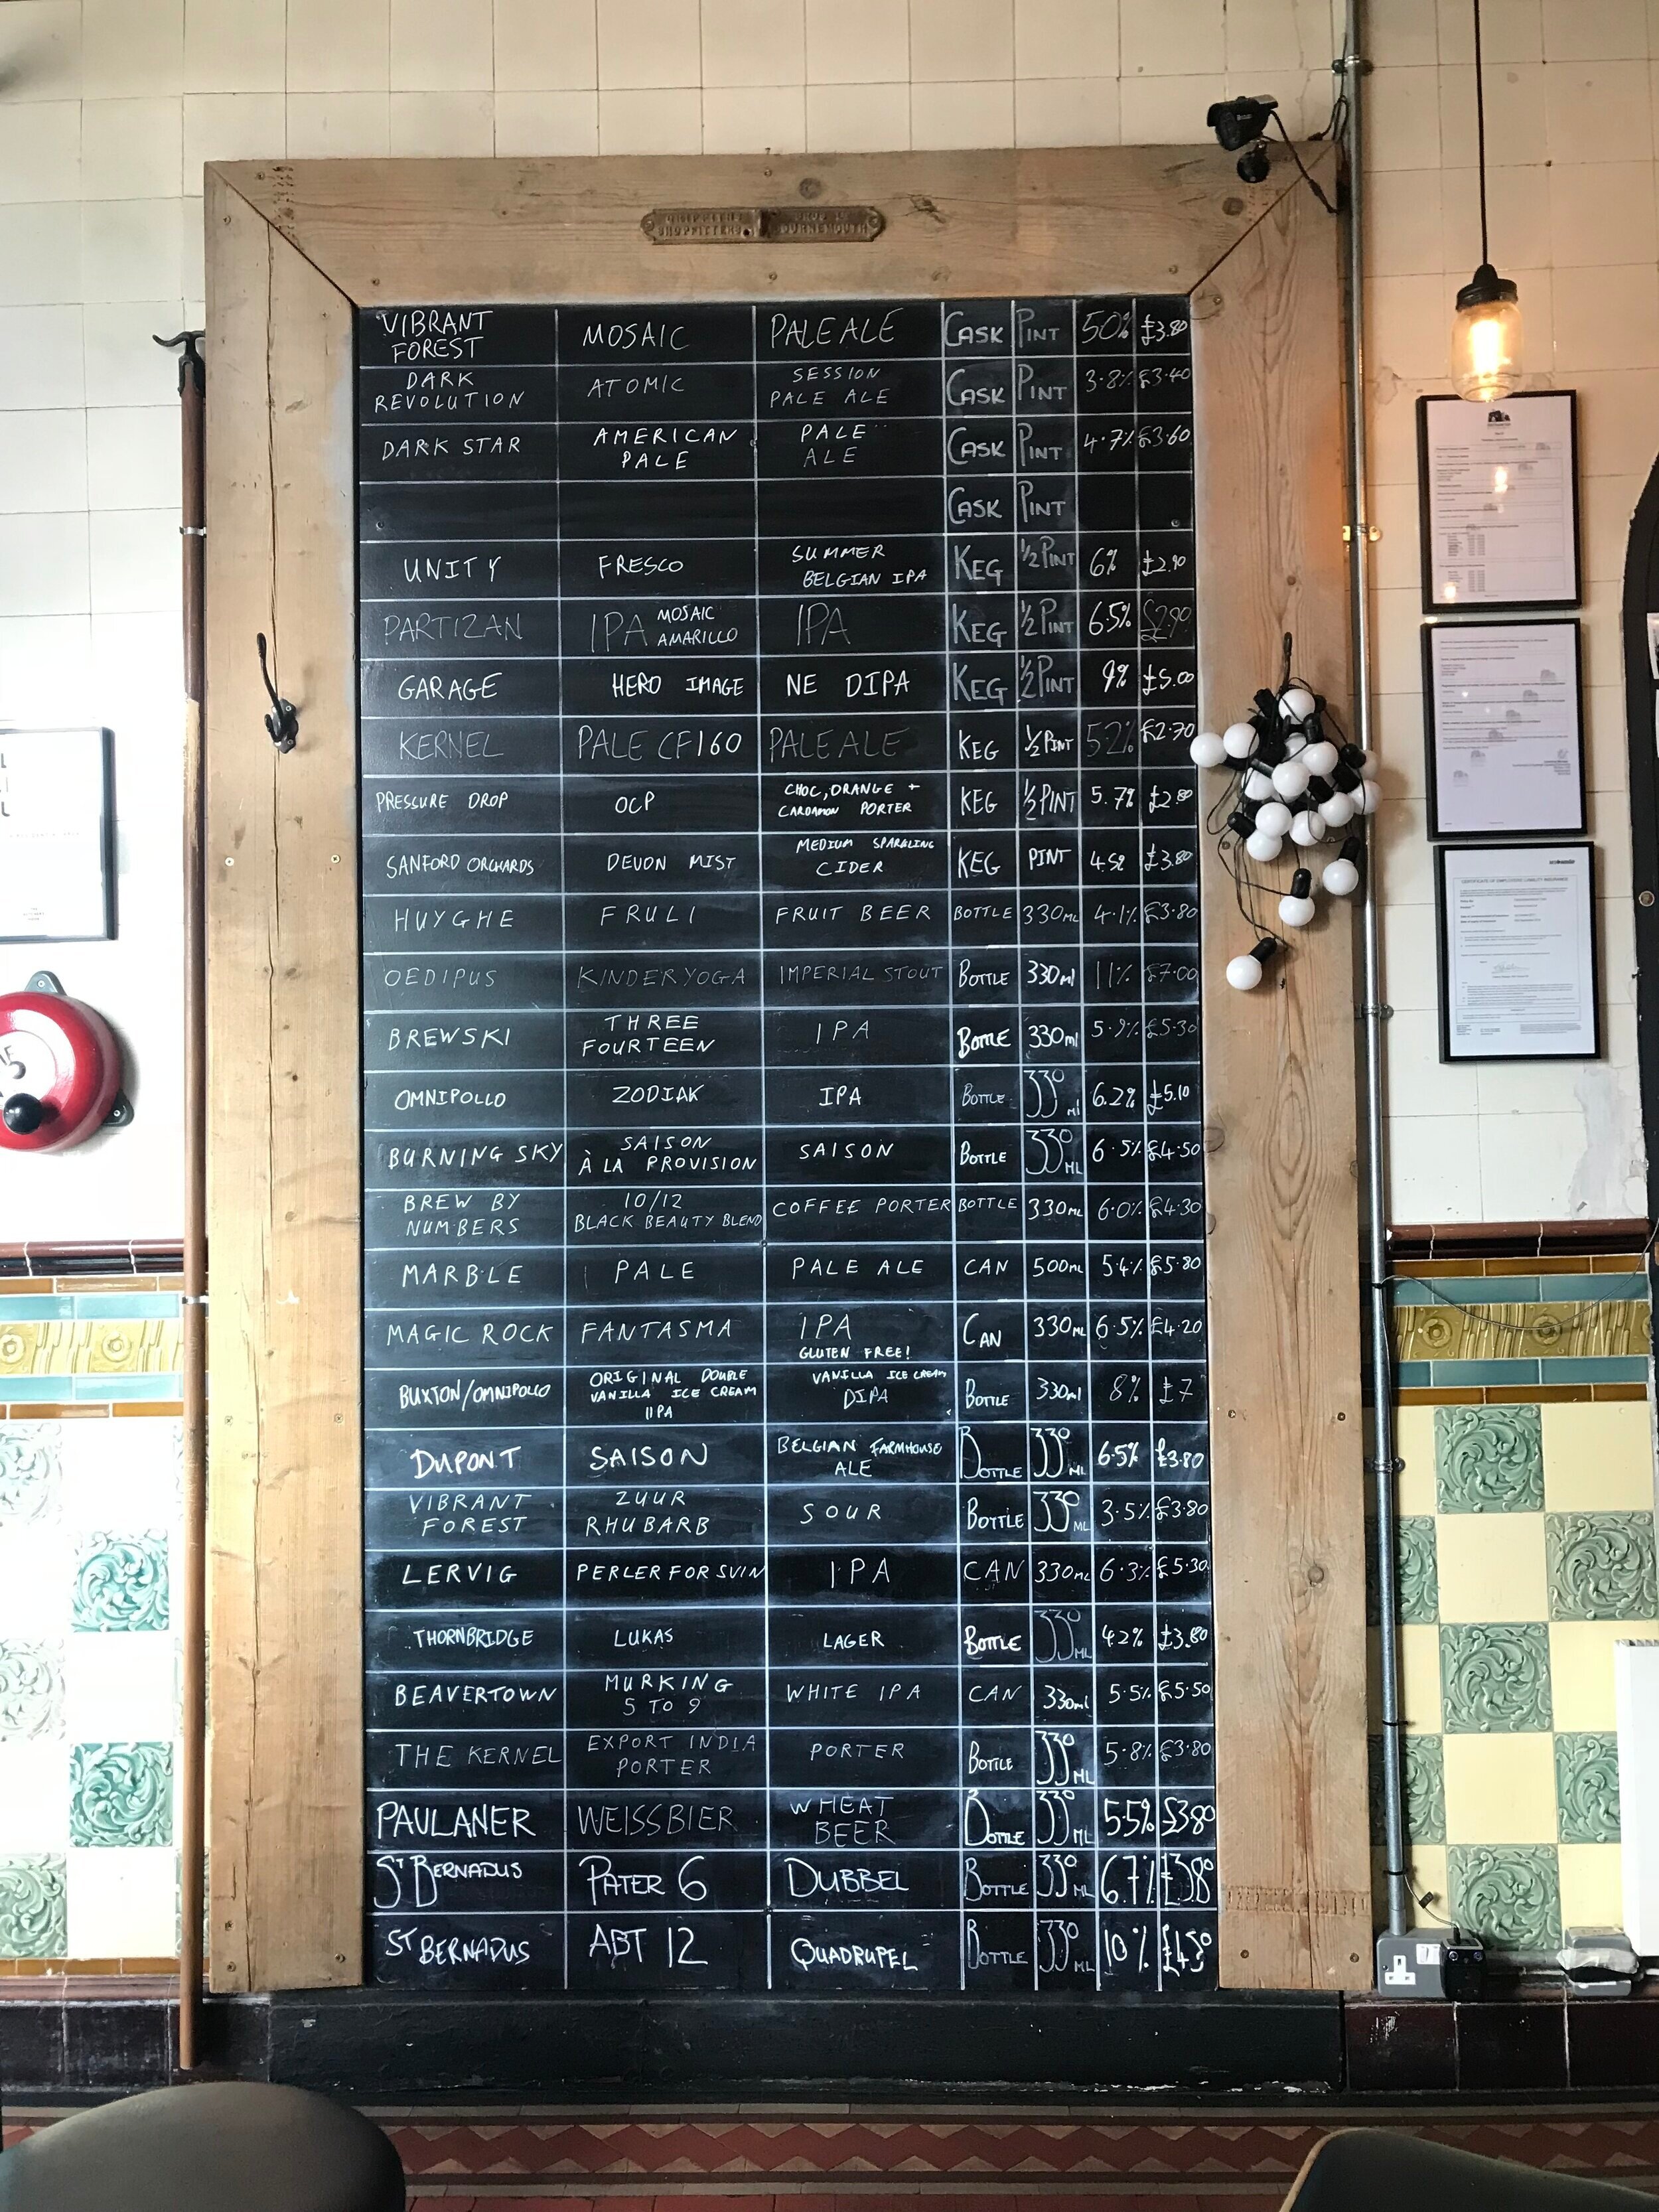 SHOPFITTERS BOURNEMOUTH
VIBRANT FOREST MOSAIC PALE ALE CASK PINT 50% £3.80
DARK REVOLUTION ATOMIC SESSION PALE ALE CASK PINT 3.8% £3.40
DARK STAR AMERICAN PALE PALE ALE CASK PINT 4.7% £3.60
CASK PINT
UNITY FRESCO SUMMER BELGIAN IPA KEG 1/2 PINT 6% £2.90
PARTIZAN IPA MOSAIC AMARILLO IPA KEG 1/2 PINT 6.5% £2.90
GARAGE HERO IMAGE NE DIPA KEG 1/2 PINT 9% £5.00
KERNEL PALE CF160 PALE ALE KEG 1/2 PINT 5.2% £2.70
PRESSURE DROP OCP CHOC, ORANGE + CARDAMON PORTER KEG 1/2 PINT 5.7% £2.80
SANFORD ORCHARDS DEVON MIST MEDIUM SPARKLING CIDER KEG PINT 4.5% £3.80
HUYGHE FRULI FRUIT BEER BOTTLE 330ML 4.1% £3.80
OEDIPUS KINDERYOGA IMPERIAL STOUT BOTTLE 330ml 11% £7.00
BREWSKI THREE FOURTEEN IPA BOTTLE 330ml 5.9% £5.30
OMNIPOLLO ZODIAK IPA BOTTLE 330 ml 6.2% £5.10
BURNING SKY SAISON À LA PROVISION SAISON BOTTLE 330 ML 6.5% £4.50
BREW BY NUMBERS 10/12 BLACK BEAUTY BLEND COFFEE PORTER BOTTLE 330ML 6.0% £4.30
MARBLE PALE PALE ALE CAN 500ML 5.4% £5.80
MAGIC ROCK FANTASMA IPA GLUTEN FREE! CAN 330ML 6.5% £4.20
BUXTON/OMNIPOLLO ORIGINAL DOUBLE VANILLA ICE CREAM IIPA VANILLA ICE CREAM DIPA BOTTLE 330ml 8% £7
DUPONT SAISON BELGIAN FARMHOUSE ALE BOTTLE 330 ML 6.5% £3.80
VIBRANT FOREST ZUUR RHUBARB SOUR BOTTLE 330 ML 3.5% £3.80
LERVIG PERLER FOR SVIN IPA CAN 330ML 6.3% £5.30
THORNBRIDGE LUKAS LAGER BOTTLE 330 ML 4.2% £3.80
BEAVERTOWN MURKING 5 TO 9 WHITE IPA CAN 330ml 5.5% £5.50
THE KERNEL EXPORT INDIA PORTER PORTER BOTTLE 330 ML 5.8% £3.80
PAULANER WEISSBIER WHEAT BEER BOTTLE 330 ML 5.5% £3.80
ST BERNADUS PATER 6 DUBBEL BOTTLE 330 ML 6.7% £3.80
ST BERNADUS ABT 12 QUADRUPEL BOTTLE 330 ML 10% £4.50
CERTIFICATE OF EMPLOYERS' LIABILITY INSURANCE